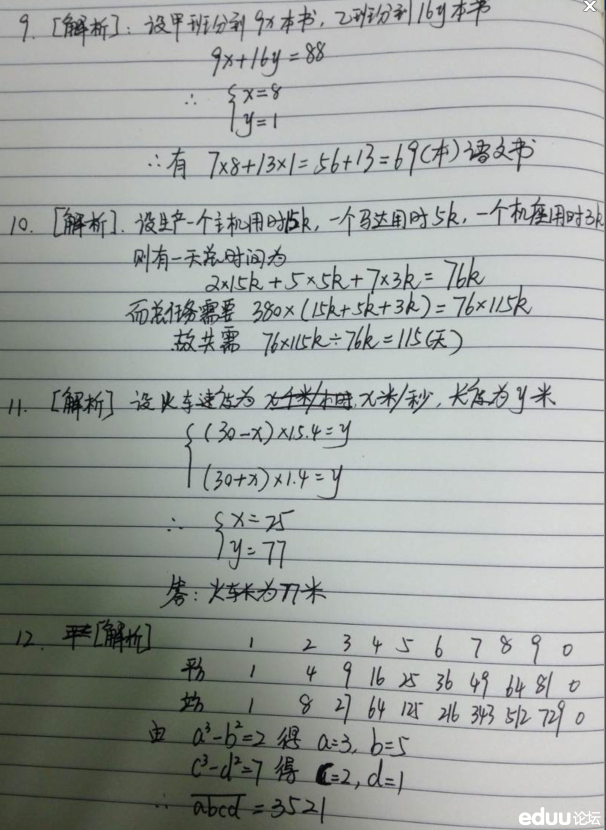 9. [解析]: 设甲班分到9x本书, 乙班分到16y本书
9x+16y=88
∴ {x=8
y=1
∴有 7×8+13×1=56+13=69(本)语文书
10. [解析]. 设生产一个主机用时15k, 一个马达用时5k, 一个机座用时3k
则有一天总时间为
2×15k+5×5k+7×3k=76k
而总任务需要 380×(15k+5k+3k)=76×115k
故共需 76×115k÷76k=115(天)
11. [解析] 设火车速度为 x千米/小时, x米/秒, 长度为y米
{(30-x)×15.4=y
(30+x)×1.4=y
∴ {x=25
y=77
答: 火车长为77米
12. [解析] 1 2 3 4 5 6 7 8 9 0
平方 1 4 9 16 25 36 49 64 81 0
立方 1 8 27 64 125 216 343 512 729 0
由 a³-b²=2 得 a=3, b=5
c³-d²=7 得 c=2, d=1
∴ abcd=3521
eduu论坛